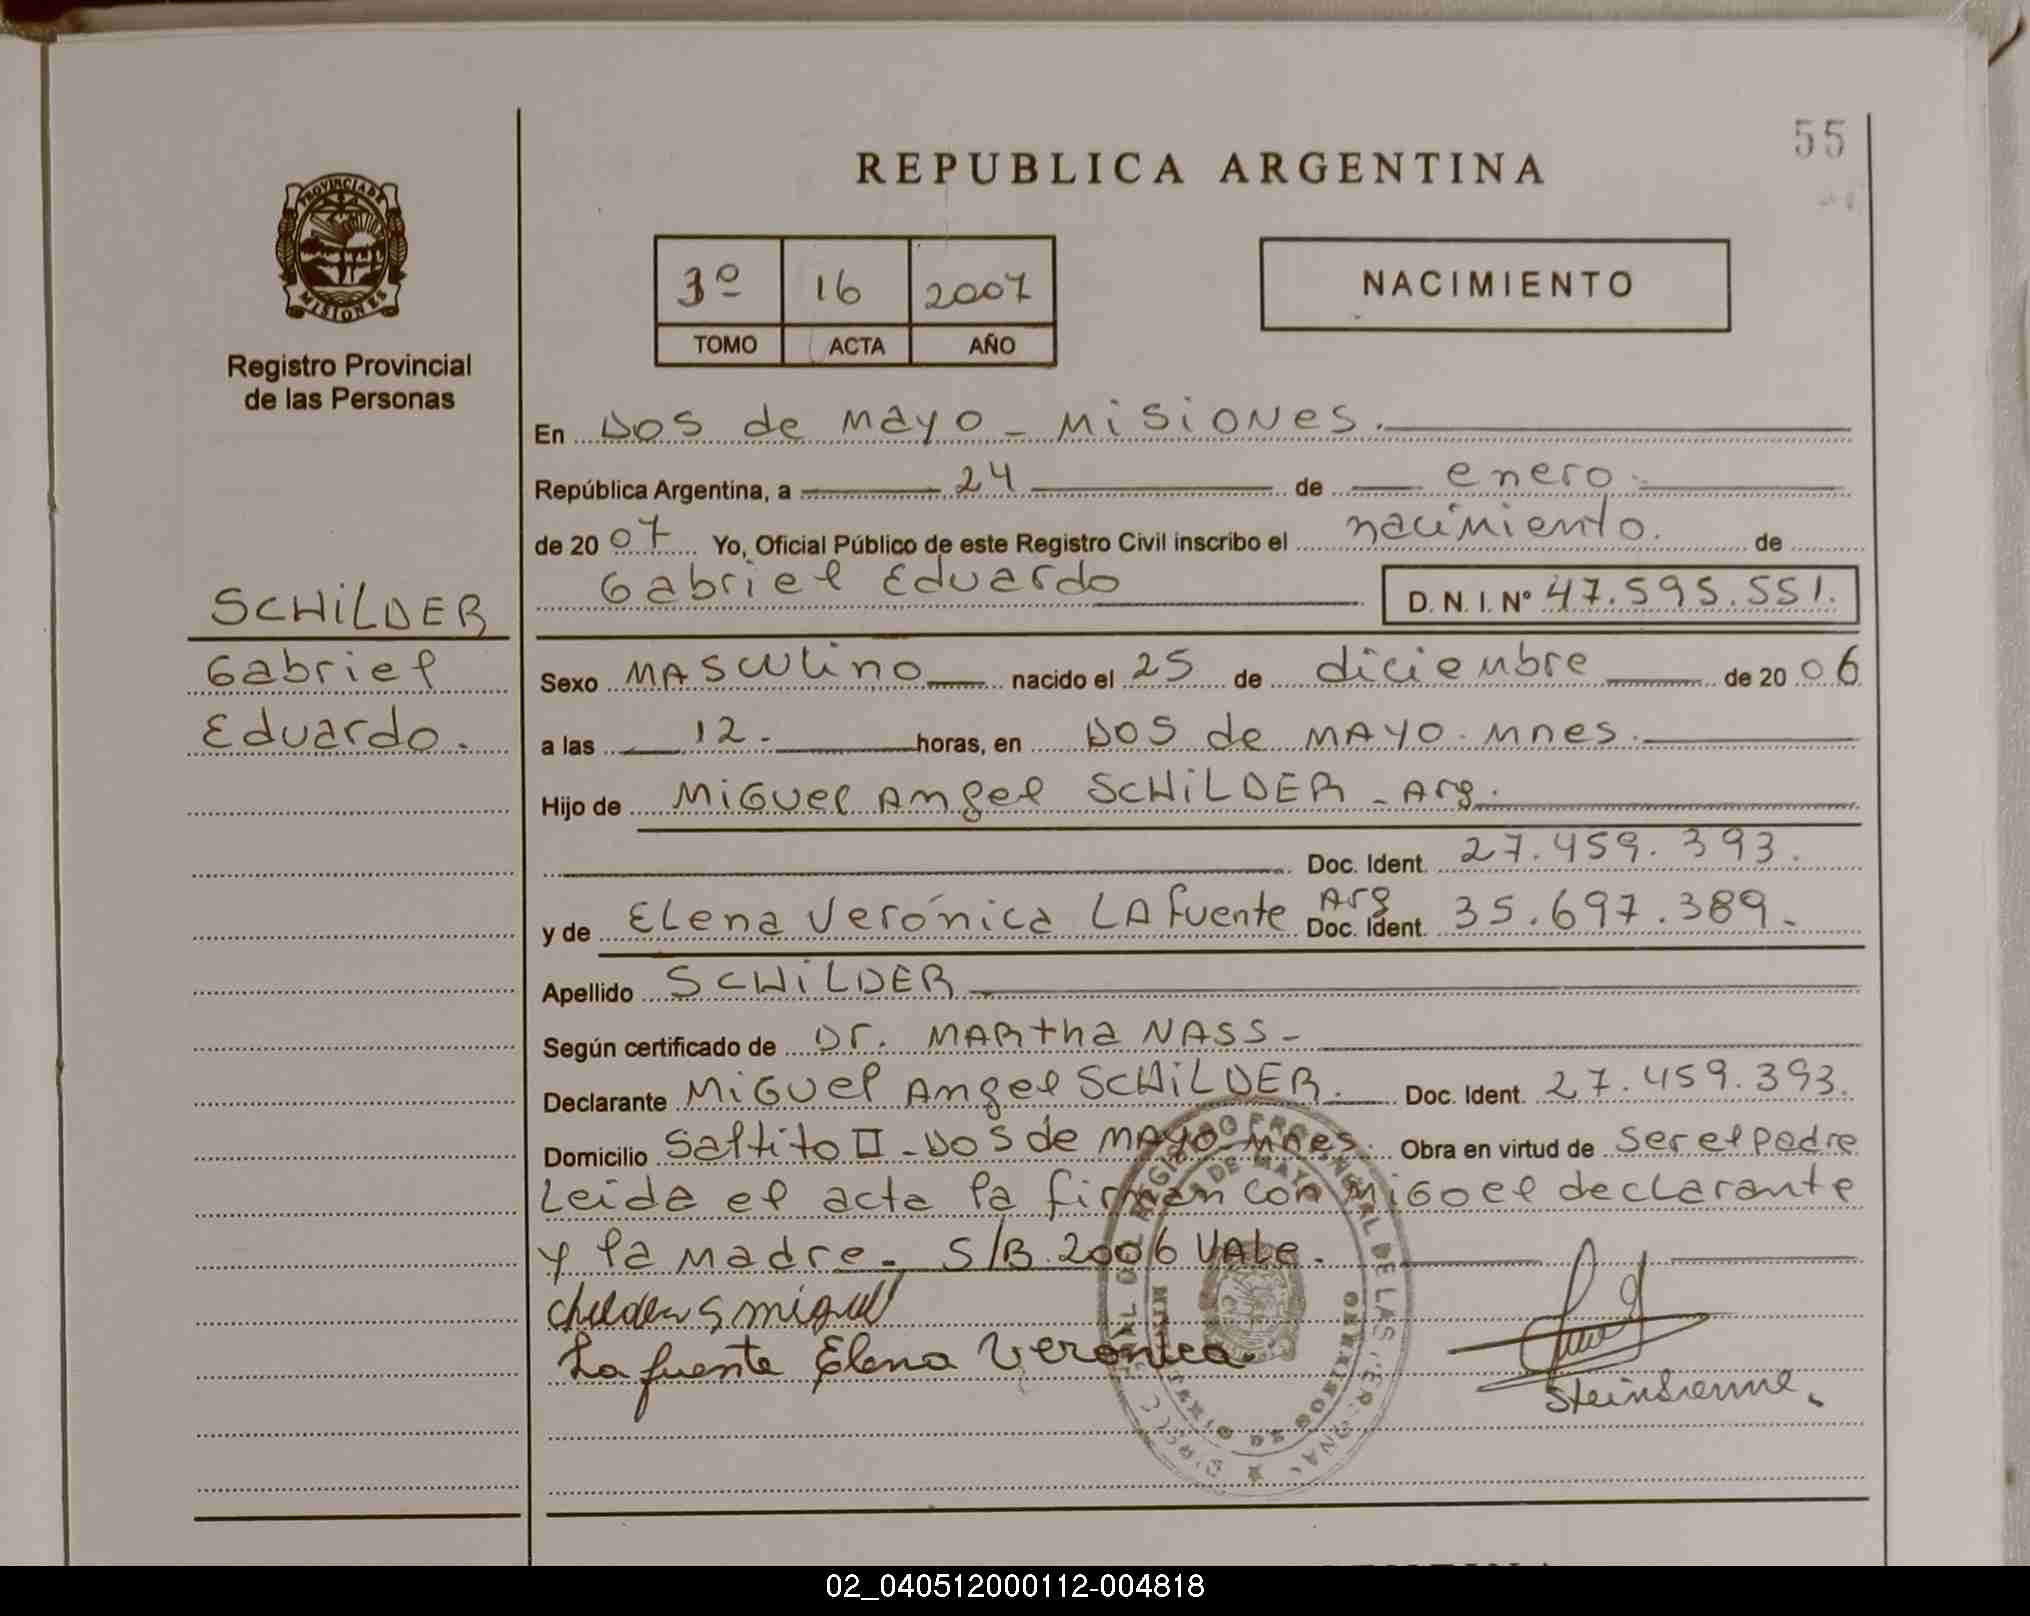 55
REPUBLICA ARGENTINA
PROVINCIA DE
MISIONES
Registro Provincial
de las Personas
3º 16 2007
TOMO ACTA AÑO
NACIMIENTO
En Dos de Mayo - Misiones.
República Argentina, a 24 de enero.
de 2007 Yo, Oficial Público de este Registro Civil inscribo el nacimiento. de
Gabriel Eduardo D. N. I. Nº 47.595.551.
SCHILDER
Gabriel
Eduardo.
Sexo MASCULINO nacido el 25 de diciembre de 2006
a las 12. horas, en Dos de MAYO. Mnes.
Hijo de Miguel Angel SCHILDER - Arg.
Doc. Ident. 27.459.393.
y de Elena Verónica LAfuente Arg Doc. Ident. 35.697.389.-
Apellido SCHILDER
Según certificado de Dr. MARtha NASS -
Declarante Miguel Angel SCHILDER. Doc. Ident. 27.459.393.
Domicilio Saltito II - Dos de MAYO - Mnes. Obra en virtud de ser el padre
Leida el acta la firman con Migoel declarante
y la madre. S/B. 2006 VALE.
miguel
La fuente Elena Verónica.
02_040512000112-004818